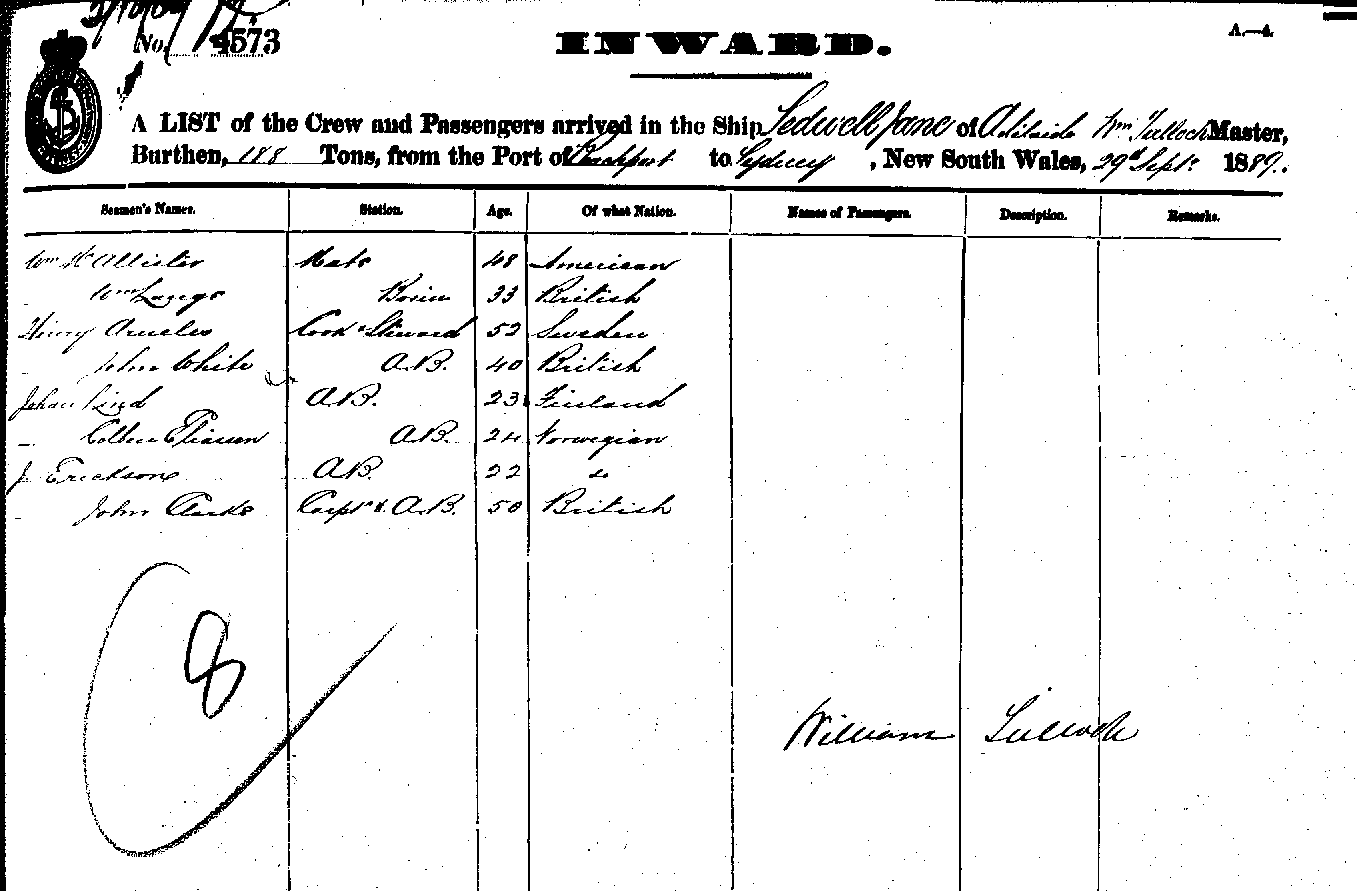 No. 4573
INWARD.
A.—4.
A LIST of the Crew and Passengers arrived in the Ship Sedwell Jane of Adelaide Wm. Tulloch Master,
Burthen, 188 Tons, from the Port of to Sydney, New South Wales, 29th Septr. 1889.
Seamen's Names. Station. Age. Of what Nation. Names of Passengers. Description. Remarks.
Wm McAllister Mate 48 American
Wm Bosun 33 British
Henry Cook & Steward 52 Sweden
John White A.B. 40 British
Johan Lind A.B. 23 Finland
Eliassen A.B. 24 Norwegian
J Erickson A.B. 22 do
John Clarke Carptr & A.B. 50 British
8
William Tulloch